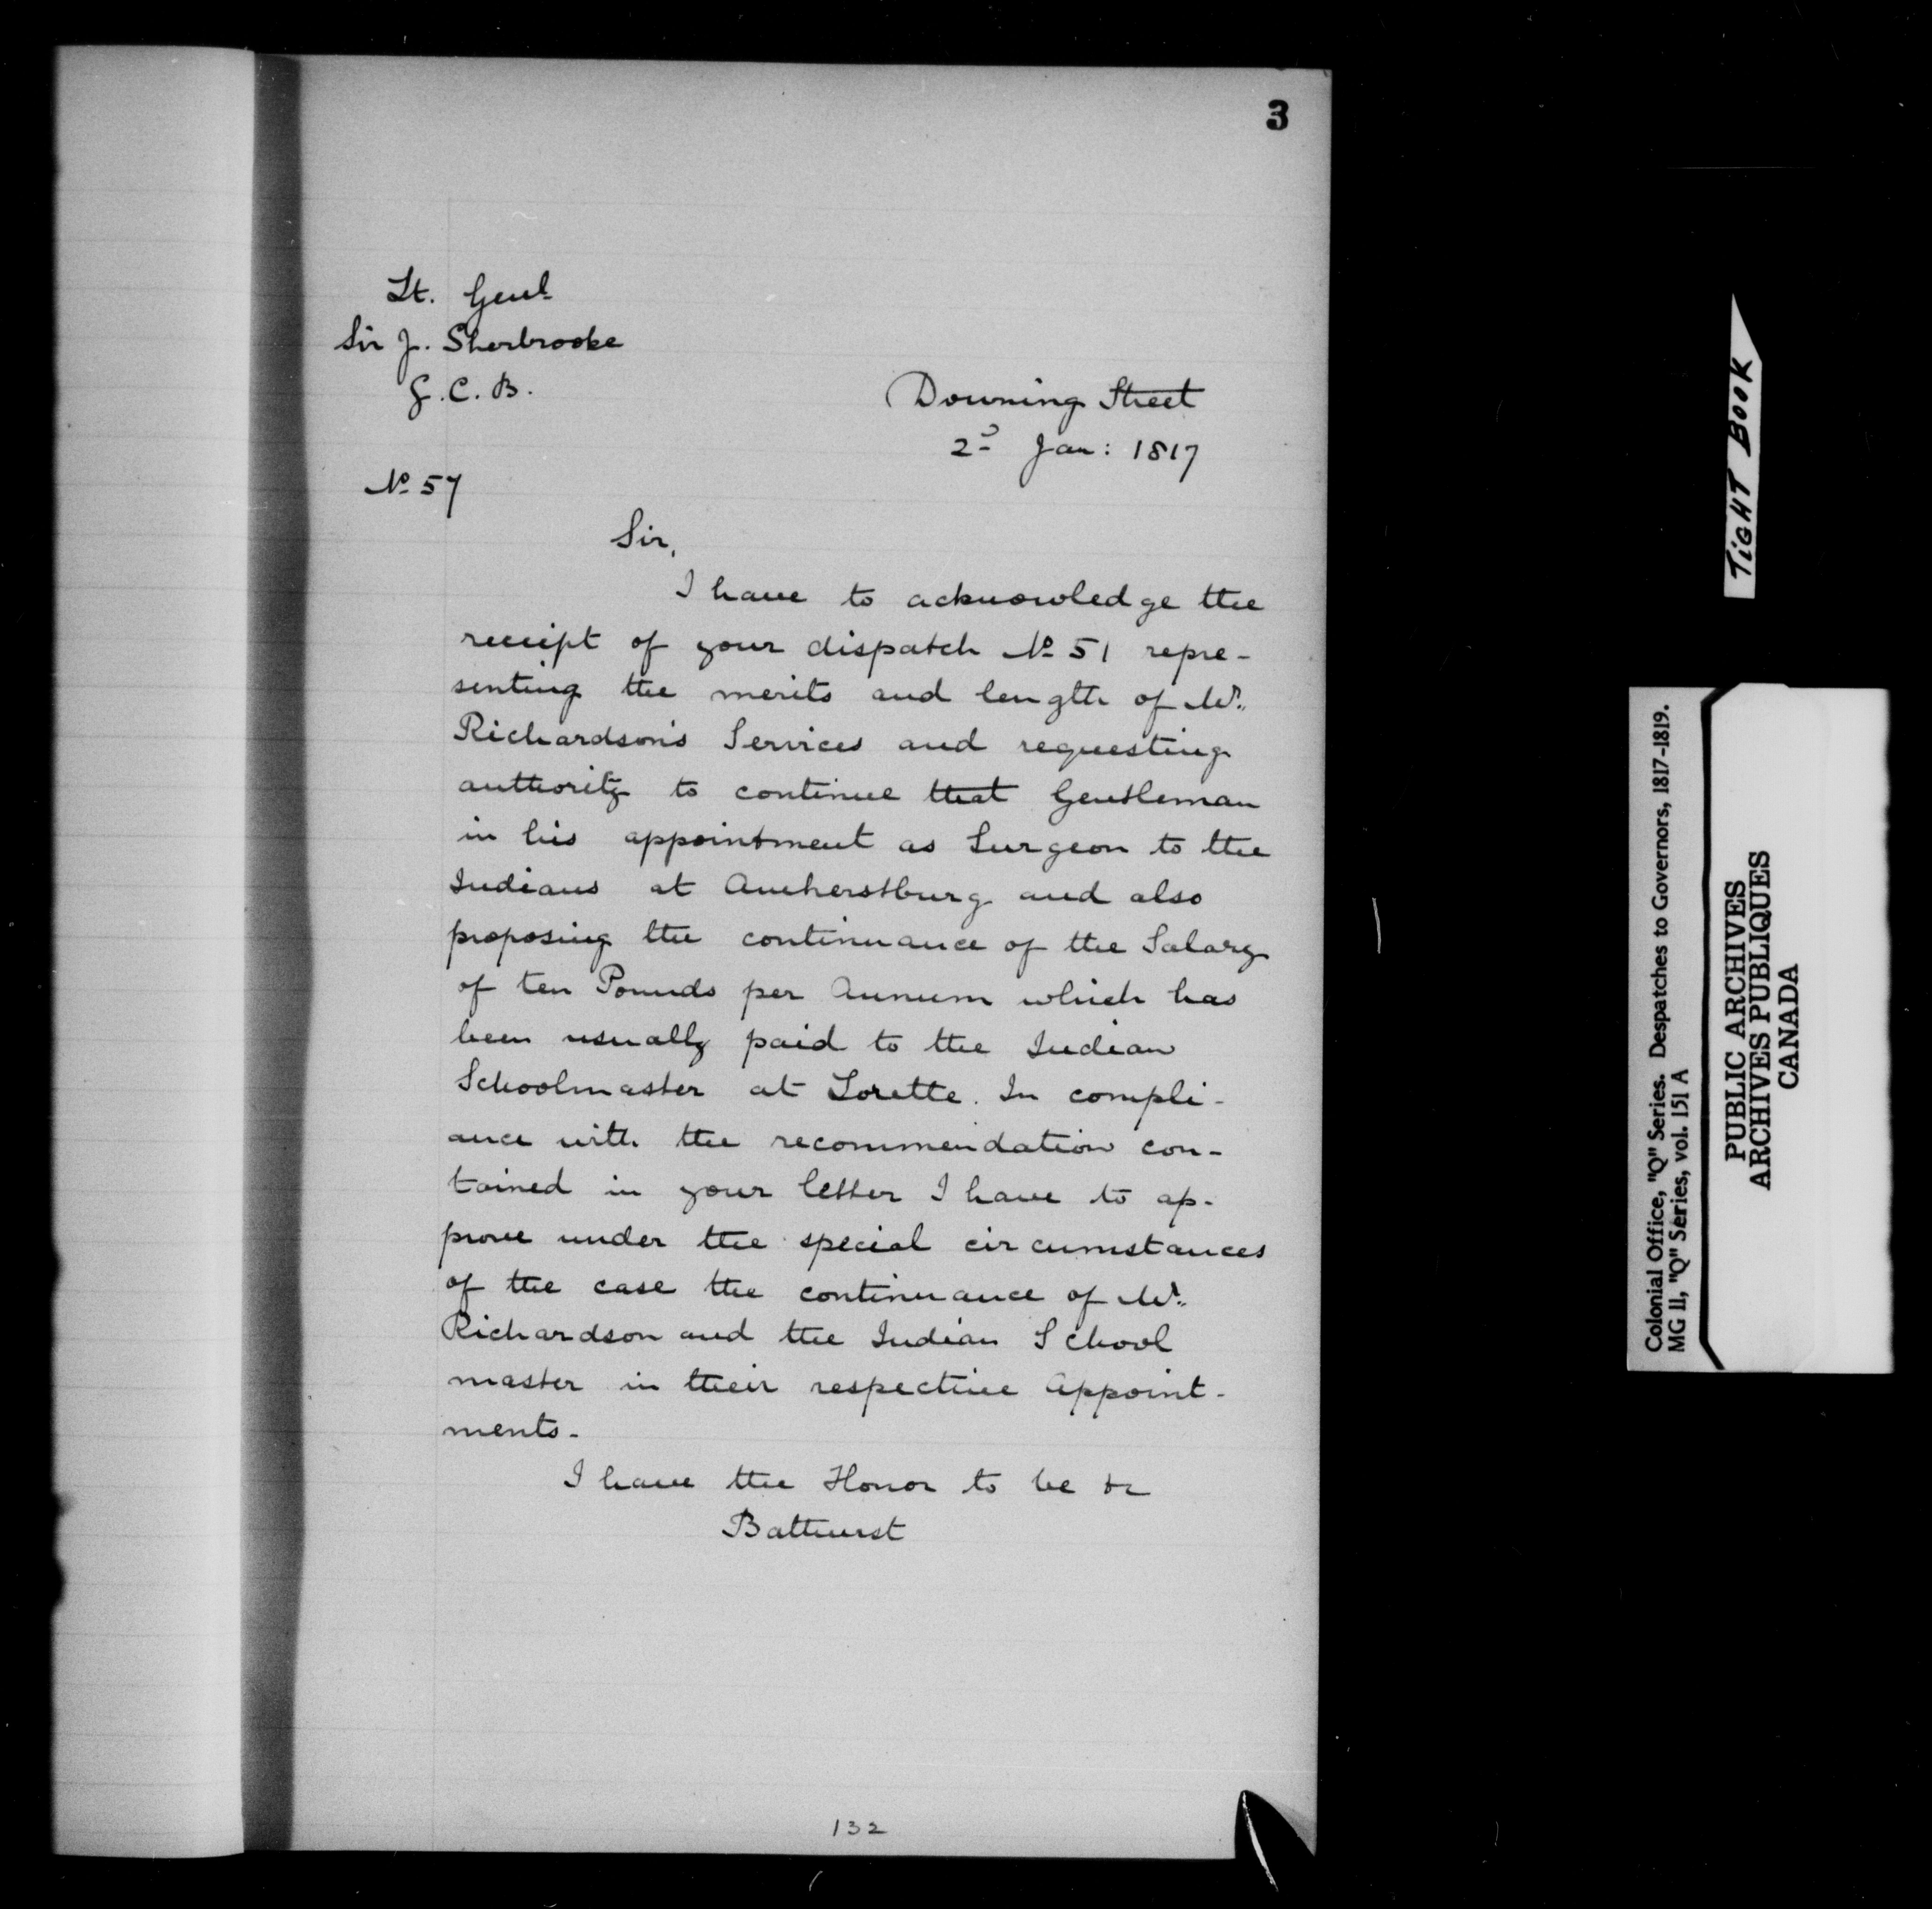 3
Lt. Genl
Sir J. Sherbrooke
G. C. B.
Downing Street
2d Jan: 1817
No 57
Sir,
I have to acknowledge the
receipt of your dispatch No 51 repre-
senting the merits and length of Mr.
Richardson's Services and requesting
authority to continue that Gentleman
in his appointment as Surgeon to the
Indians at Amherstburg and also
proposing the continuance of the Salary
of ten Pounds per Annum which has
been usually paid to the Indian
Schoolmaster at Lorette. In compli-
ance with the recommendation con-
tained in your letter I have to ap-
prove under the special circumstances
of the case the continuance of Mr.
Richardson and the Indian School
master in their respective Appoint-
ments-
I have the Honor to be &c
Bathurst
132
TiGHT BOOK
Colonial Office, "Q" Series. Despatches to Governors, 1817-1819.
MG 11, "Q" Series, vol. 151 A
PUBLIC ARCHIVES
ARCHIVES PUBLIQUES
CANADA